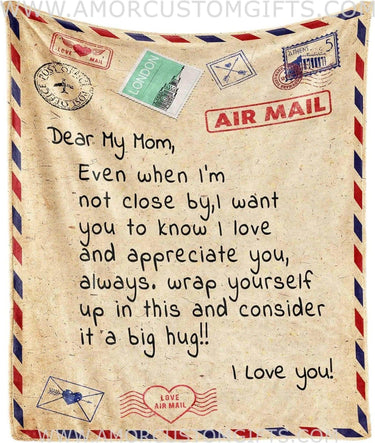 WWW.AMORCUSTOMGIFTS.COM
LOVE MAIL
POST OFFICE
LONDON
ATHENS
5
AIR MAIL
Dear My Mom,
Even when I'm
not close by,I want
you to know I love
and appreciate you,
always. wrap yourself
up in this and consider
it a big hug!!
I love you!
LOVE
AIR MAIL
WWW.AMORCUSTOMGIFTS.COM